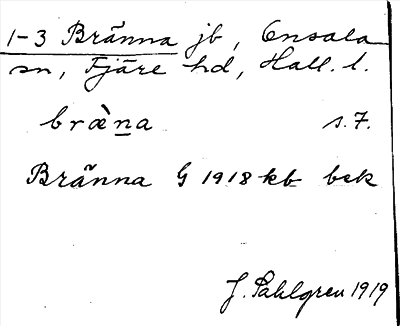 1-3 Bränna jb, Onsala
sn, Fjäre hd, Hall. l.
bræ̀na s. 7.
Bränna G 1918 kb bsk
J. Sahlgren 1919